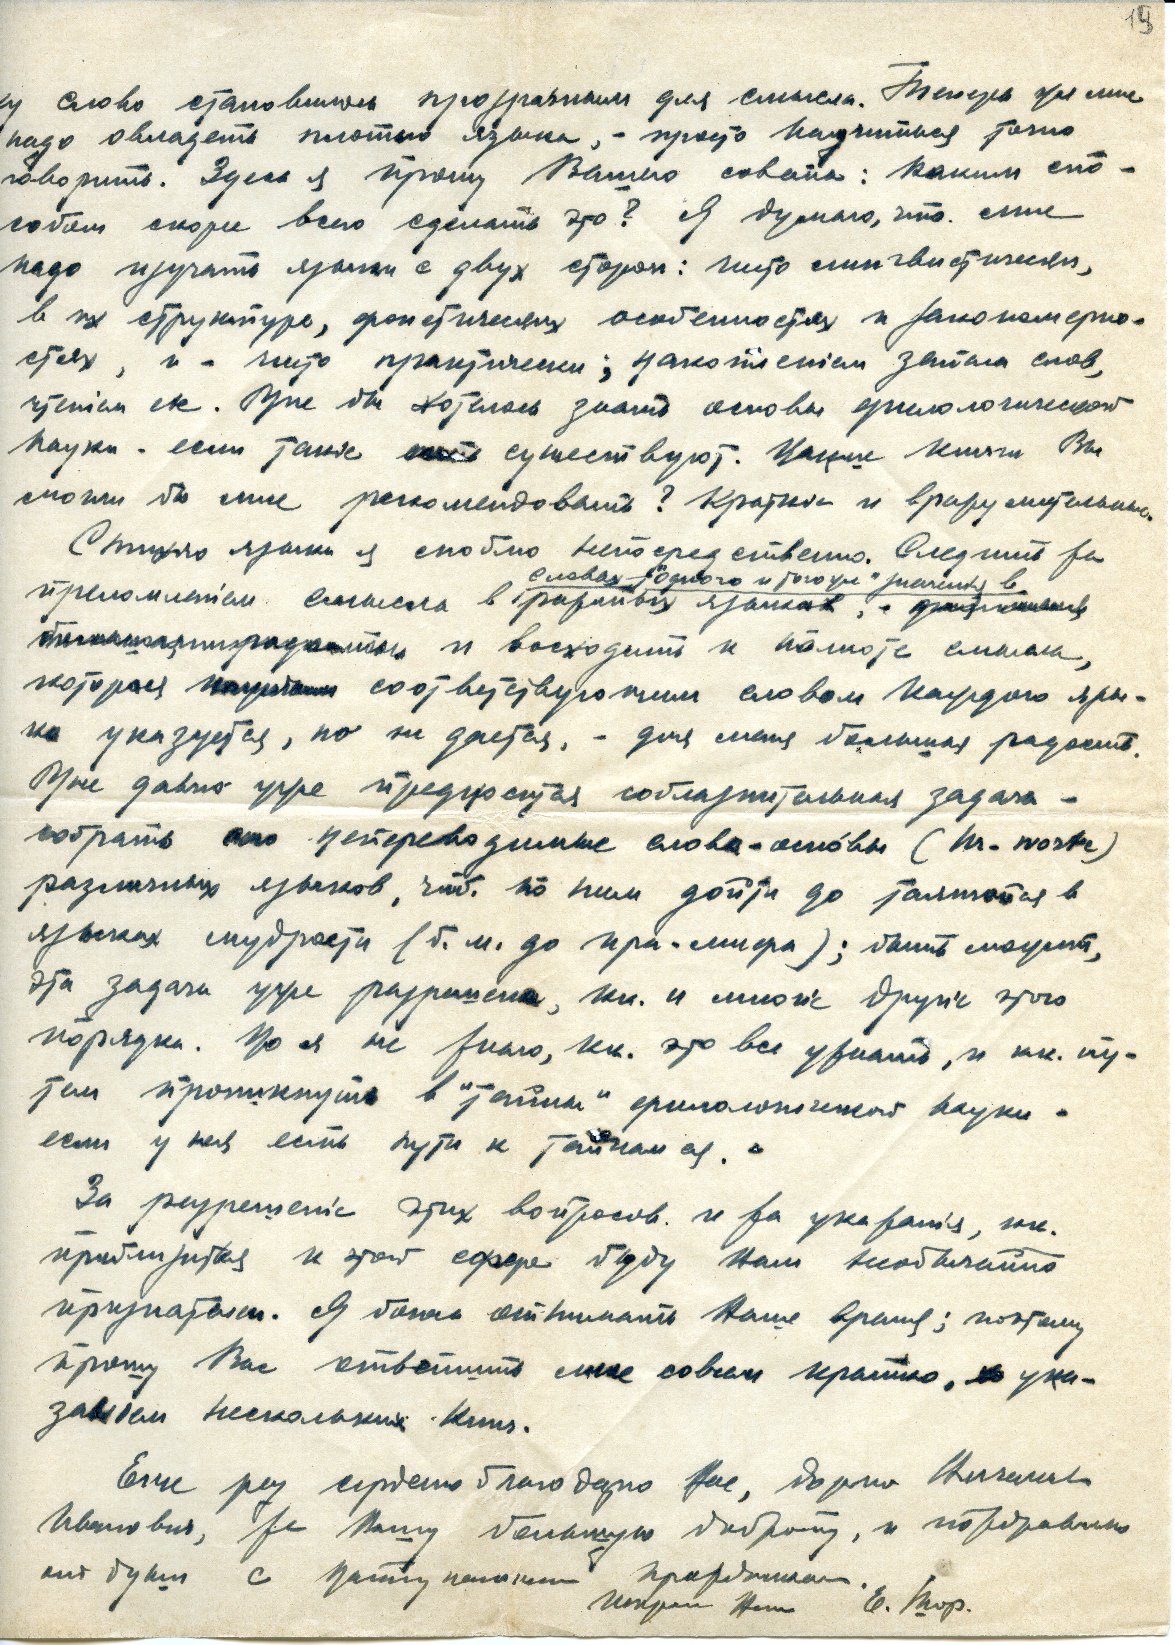 19
слово становилось прозрачным для смысла. Теперь же мне
надо овладеть плотью языка, - просто научиться точно
говорить. Здесь я прошу Вашего совета: каким спо-
собом скорее всего сделать это? Я думаю, что мне
надо изучать языки с двух сторон: чисто лингвистически,
в их структуре, фонетических особенностях и закономерно-
стях, и - чисто практически; накоплением запаса слов,
чтением etc. Мне бы хотелось знать основы филологической
науки - если такие существуют. Какие книги Вы
могли бы мне рекомендовать? Кратких и вразумительных.
Стихию языка я люблю непосредственно. Следить за
словах "одного и того же" значения в
преломлением смысла в разных языках, -
и восходить к полноте смысла,
которая соответствующим словом каждого язы-
ка указуется, но не дается, - для меня большая радость.
Мне давно уже предносится соблазнительная задача -
собрать непереводимые слова-основы (Ur-worte)
различных языков, чтб. по ним дойти до таящейся в
языках мудрости (б. м. до пра-мифа); быть может,
эта задача уже разрешена, кк. и многие другие этого
порядка. Но я не знаю, кк. это все узнать, и кк. пу-
тем проникнуть в "тайны" филологической науки -
если у нея есть пути к тайнам ея. -
За разрешение этих вопросов и за указания, кк.
приблизиться к этой сфере буду Вам необычайно
признателен. Я боюсь отнимать Ваше время; поэтому
прошу Вас ответить мне совсем кратко, указа-
занием нескольких книг.
Еще раз сердечно благодарю Вас, дорогой
Иванович, за Вашу большую доброту, и поздравляю
от души с наступающим праздником.
Искренно Ваш Е. Тор.